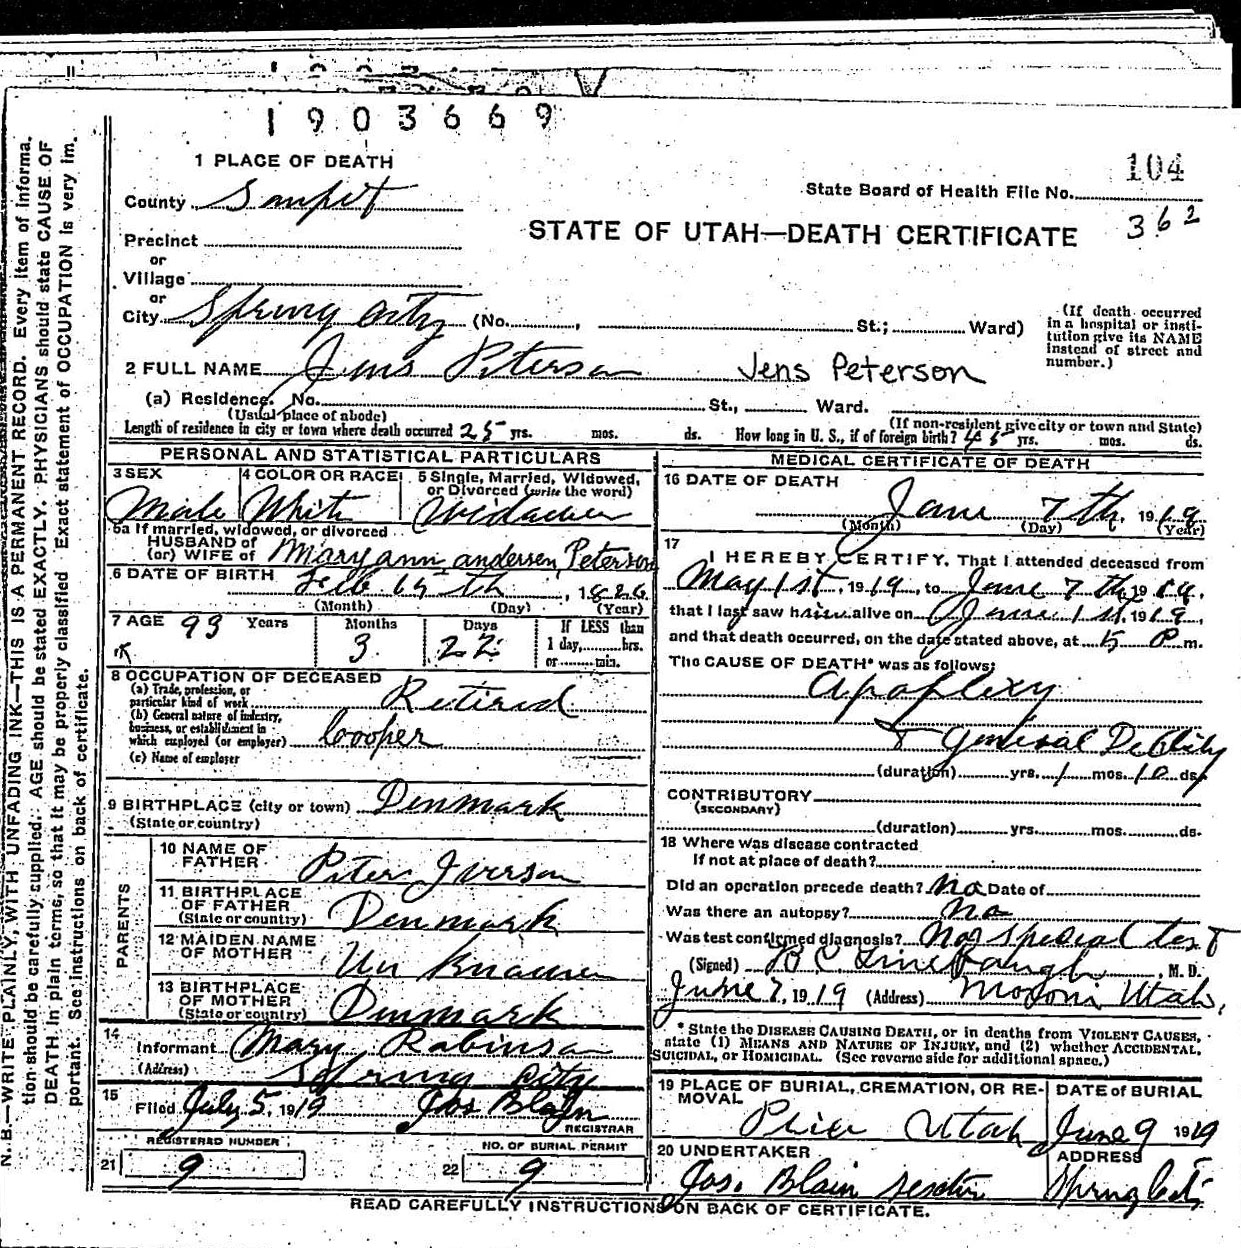 1903669
1 PLACE OF DEATH
104
County Sanpet
State Board of Health File No.
STATE OF UTAH—DEATH CERTIFICATE
362
Precinct
or
Village
or
City Spring City (No. , St.; Ward)
(If death occurred in a hospital or insti-
tution give its NAME
instead of street and
number.)
2 FULL NAME Jens Peterson Jens Peterson
(a) Residence. No. St., Ward.
(Usual place of abode) (If non-resident give city or town and State)
Length of residence in city or town where death occurred 25 yrs. mos. ds. How long in U. S., if of foreign birth? 45 yrs. mos. ds.
PERSONAL AND STATISTICAL PARTICULARS
3 SEX
Male
4 COLOR OR RACE
White
5 Single, Married, Widowed,
or Divorced (write the word)
Widower
5a If married, widowed, or divorced
HUSBAND of
(or) WIFE of Mary ann andersen Peterson
6 DATE OF BIRTH Feb 15th, 1826
(Month) (Day) (Year)
7 AGE 93 Years Months 3 Days 22
If LESS than
1 day, hrs.
or min.
8 OCCUPATION OF DECEASED
(a) Trade, profession, or
particular kind of work Retired
(b) General nature of industry,
business, or establishment in
which employed (or employer) Cooper
(c) Name of employer
9 BIRTHPLACE (city or town) Denmark
(State or country)
PARENTS
10 NAME OF
FATHER Peter Iverson
11 BIRTHPLACE
OF FATHER
(State or country) Denmark
12 MAIDEN NAME
OF MOTHER Un Known
13 BIRTHPLACE
OF MOTHER
(State or country) Denmark
14
Informant Mary Robinson
(Address) Spring City
15
Filed July 5, 1919 Jos Blain
REGISTRAR
REGISTERED NUMBER
21 9
NO. OF BURIAL PERMIT
22 9
MEDICAL CERTIFICATE OF DEATH
16 DATE OF DEATH
June 7th, 1919
(Month) (Day) (Year)
17
I HEREBY CERTIFY, That I attended deceased from
May 1st, 1919, to June 7th 1919.
that I last saw him alive on June 1st, 1919,
and that death occurred, on the date stated above, at 5 P m.
The CAUSE OF DEATH* was as follows:
Apoplexy
& General Debility
(duration) yrs. 1 mos. 10 ds.
CONTRIBUTORY
(SECONDARY)
(duration) yrs. mos. ds.
18 Where was disease contracted
If not at place of death?
Did an operation precede death? No Date of
Was there an autopsy? No
Was test confirmed diagnosis? No special test
(Signed) B C Linebaugh, M. D.
June 7, 1919 (Address) Moroni Utah,
* State the DISEASE CAUSING DEATH, or in deaths from VIOLENT CAUSES,
state (1) MEANS AND NATURE OF INJURY, and (2) whether ACCIDENTAL,
SUICIDAL, or HOMICIDAL. (See reverse side for additional space.)
19 PLACE OF BURIAL, CREMATION, OR RE-
MOVAL
Price Utah
DATE of BURIAL
June 9 1919
20 UNDERTAKER
Jos. Blain sexton
ADDRESS
Spring City
READ CAREFULLY INSTRUCTIONS ON BACK OF CERTIFICATE.
N. B.—WRITE PLAINLY, WITH UNFADING INK—THIS IS A PERMANENT RECORD. Every item of informa-
tion should be carefully supplied. AGE should be stated EXACTLY. PHYSICIANS should state CAUSE OF
DEATH in plain terms, so that it may be properly classified. Exact statement of OCCUPATION is very im-
portant. See instructions on back of certificate.